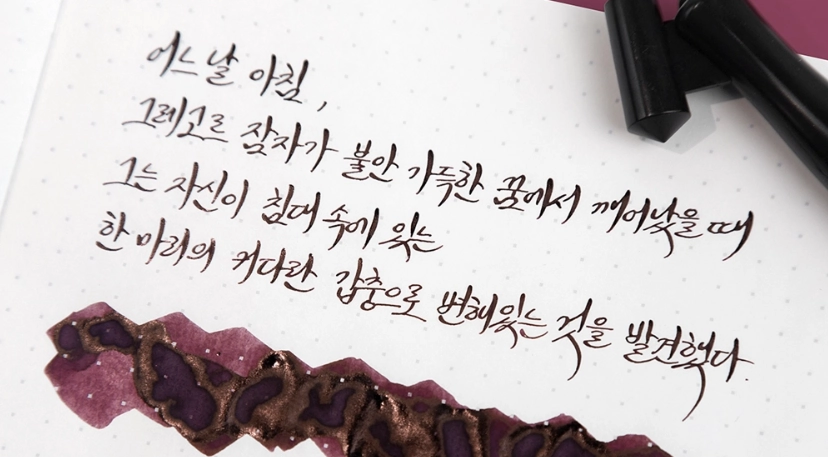 어느날 아침,
그레고르 잠자가 불안 가득한 꿈에서 깨어났을 때
그는 자신이 침대 속에 있는
한 마리의 커다란 갑충으로 변해있는 것을 발견했다.